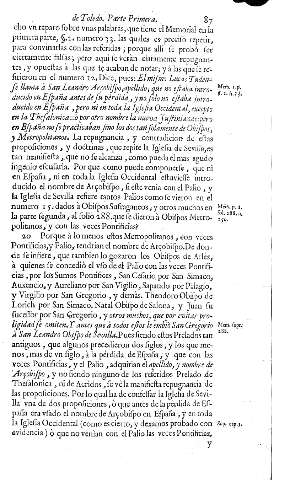 de Toledo. Parte Primera. 87
cho un reparo sobre unas palabras, que tiene el Memorial en la
primera parte, §.2. numero 33. las quales es preciso repetir,
para convinarlas con las referidas; porque alli se probò ser
ciertamente falsas, pero aqui se veràn claramente repugnan-
tes, y opuestas à las que se acaban de notar; y à las que se re-
firieron en el numero 12. Dice, pues: El mismo Lucas Tudens
se llama à San Leandro Arçobispo, apellido, que no estaba intro-
ducido en España antes de su pèrdida, y no solo no estaba intro-
ducido en España, pero ni en toda la Iglesia Occidental, excepto
en la Thesalonica: o por otro nombre la nueva Justiniana: porque
en España no se practicaban sino los dos tan solamente de Obispos,
y Metropolitanos. La repugnancia, y contradicion de estas
proposiciones, y doctrinas, que repite la Iglesia de Sevilla, es
tan manifiesta, que no se alcanza, como pueda el mas agudo
ingenio escusarla. Por que como puede componerse, que ni
en España, ni en toda la Iglesia Occidental estuviesse intro-
ducido el nombre de Arçobispo, si este venia con el Palio, y
la Iglesia de Sevilla refiere tantos Palios concedidos en el
numero 12. dados à Obispos Sufraganeos, y otros muchos en
la parte segunda, al folio 288. que se dieron à Obispos Metro-
politanos, y con las veces Pontificias?
20 Porque à lo menos estos Metropolitanos, con veces
Pontificias, y Palio, tendrian el nombre de Arçobispo. De don-
de se infiere, que tambien lo gozaron los Obispos de Arlès,
à quienes se concediò el uso de el Palio con las veces Pontifi-
cias, por los Sumos Pontifices, San Cesario por San Simaco,
Auxanio, y Aureliano por San Vigilio, Sapaudo por Pelagio,
y Virgilio por San Gregorio, y demàs. Theodoro Obispo de
Lorich por San Simaco, Natal Obispo de Salona, y Juan su
sucessor por San Gregorio, y otros muchos, que por evitar pro-
ligidad se omiten. Y antes que à todos estos le embiò San Gregorio
à San Leandro Obispo de Sevilla. Pues siendo estos Prelados tan
antiguos, que algunos precedieron dos siglos, y los que me-
nos, mas de un siglo, à la pèrdida de España, y que con las
veces Pontificias, y el Palio, adquirian el apellido, y nombre de
Arçobispo, y no siendo ninguno de los referidos Prelado de
Thesalonica, ni de Acridos, se vè la manifiesta repugnancia de
las proposiciones. Por lo qual ha de confessar la Iglesia de Sevi-
lla una de dos proposiciones, ò que antes de la pèrdida de Es-
paña era usado el nombre de Arçobispo en España, y en toda
la Iglesia Occidental (como es cierto, y dexamos probado con
evidencia) ò que no venian con el Palio las veces Pontificias,
y